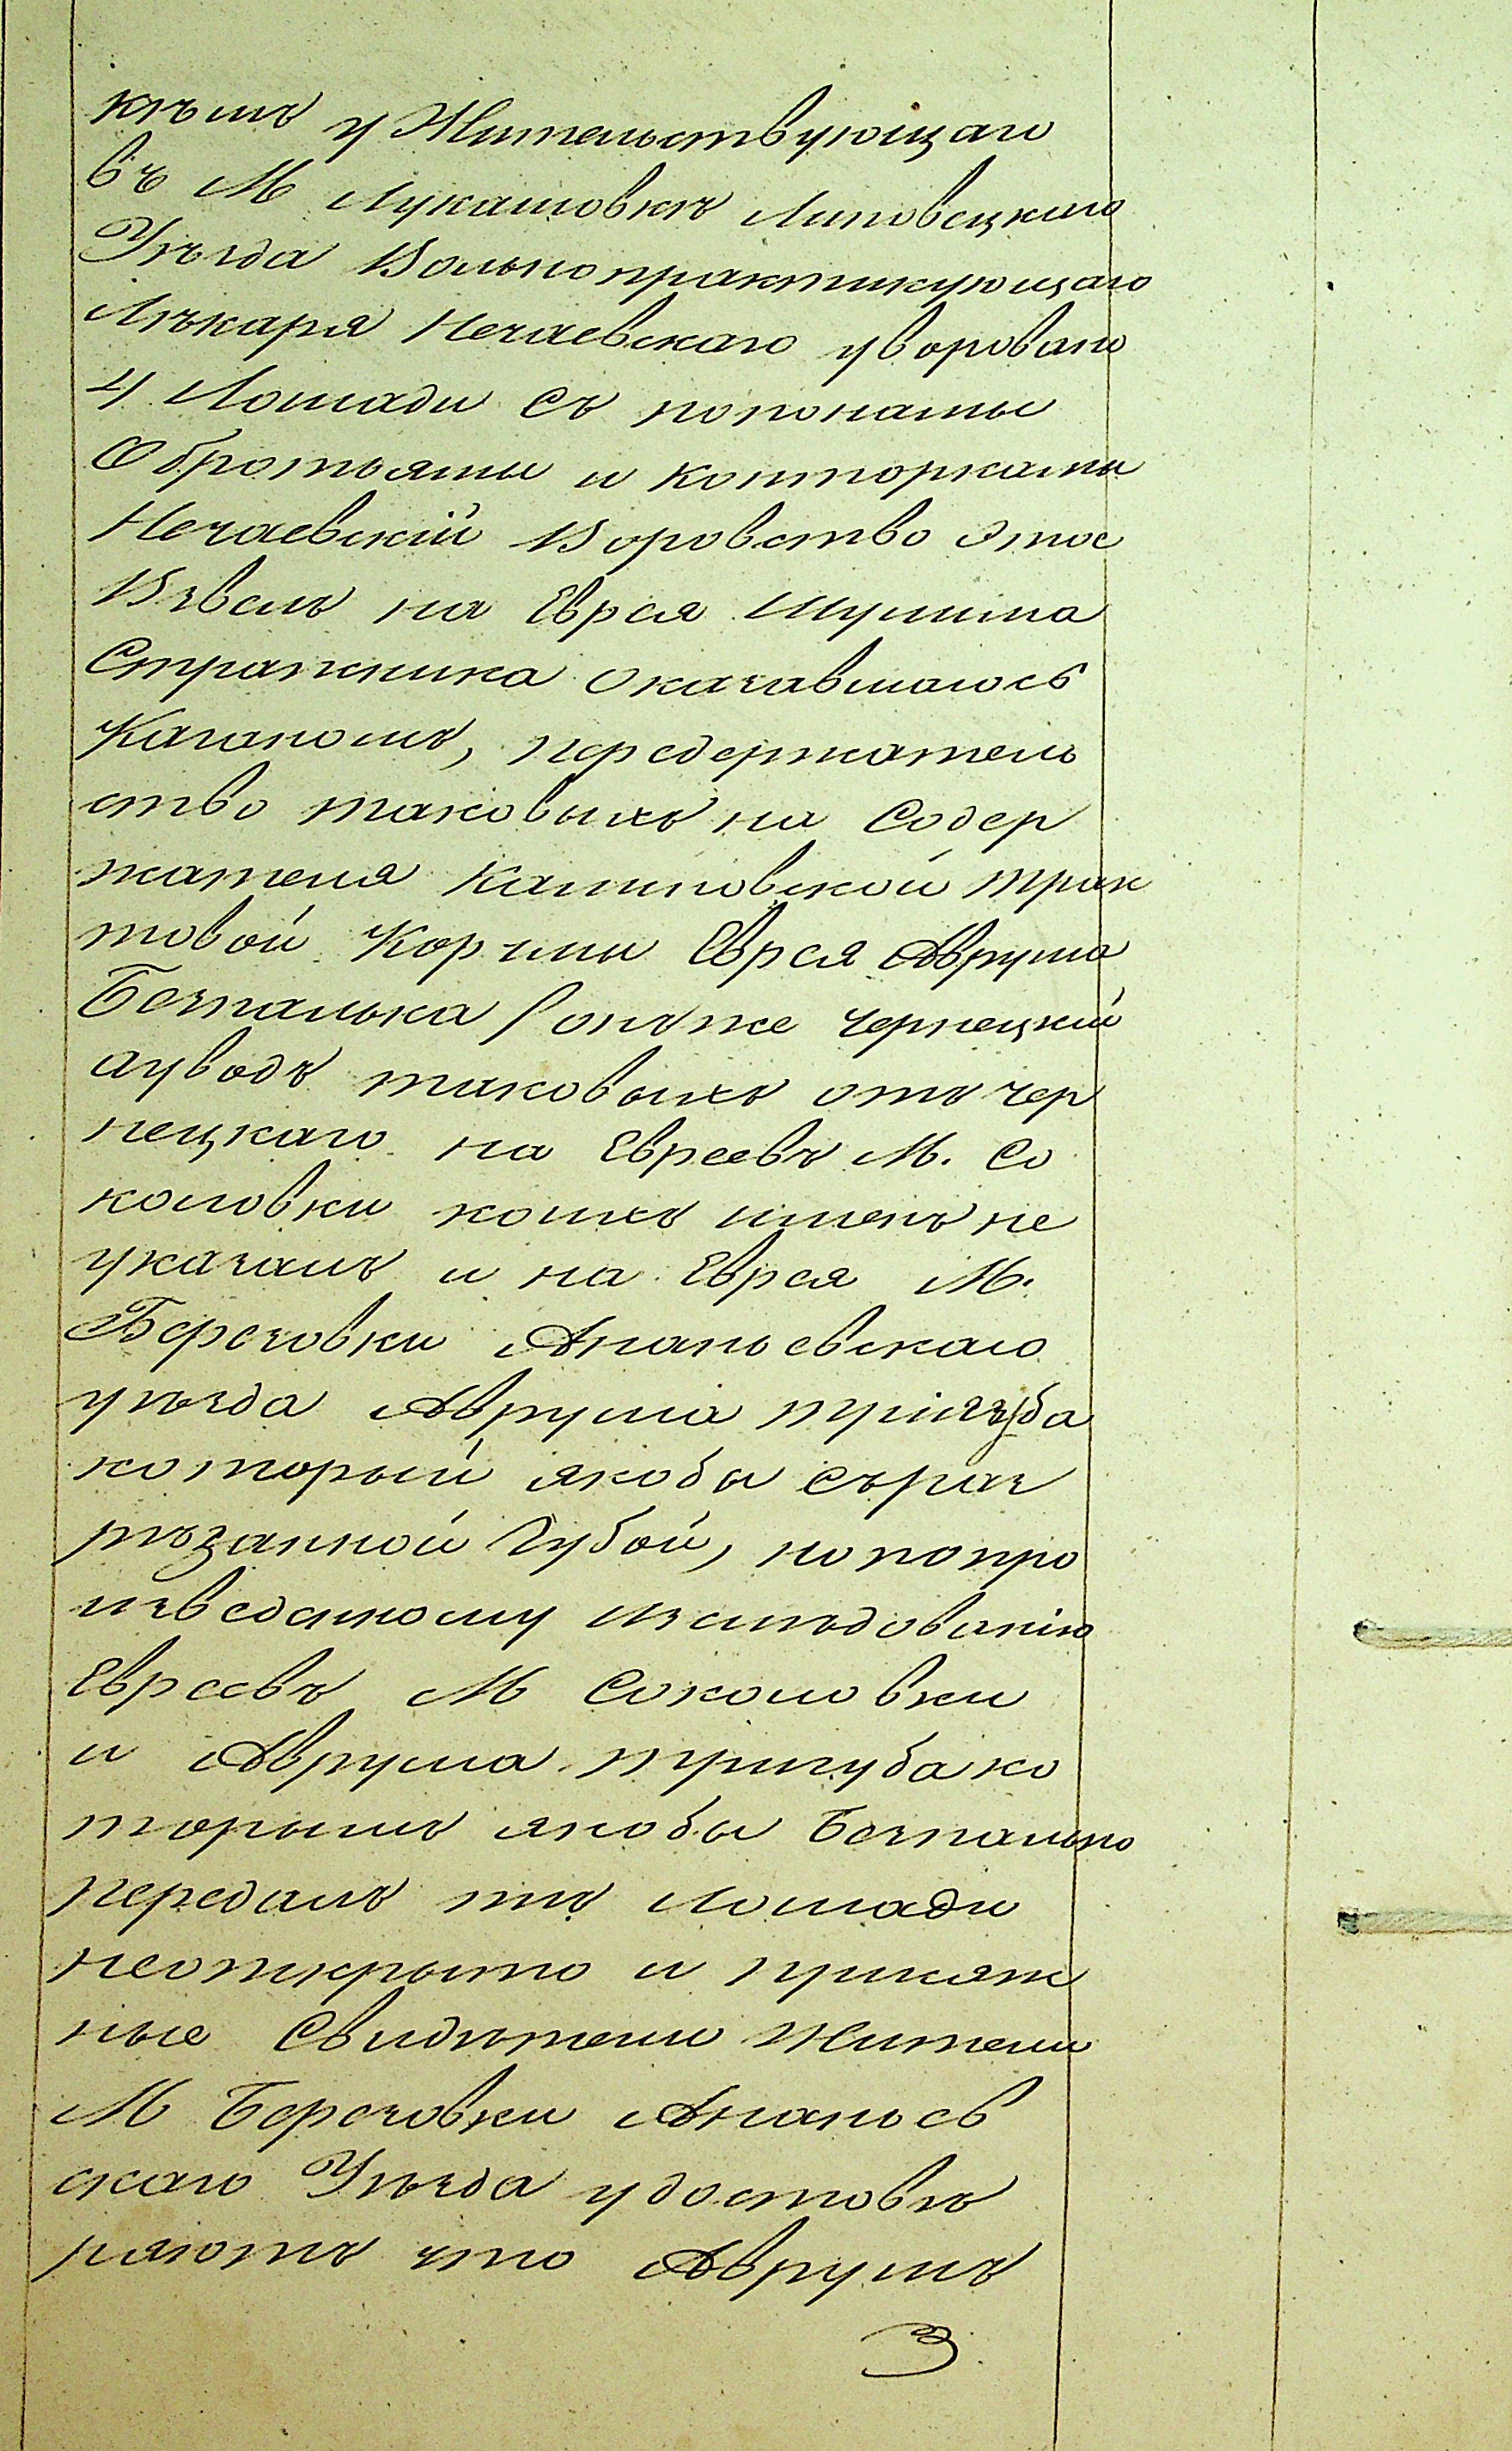 кѣмъ у Жительствующаго
въ М Лукашовкѣ Липовецкаго
Уѣзда Вольнопрактикующаго
Лѣкаря Нечаевскаго уворовано
4 Лошади съ попонами
Обротьями и конторками
Нечаевскій Воровство это
Взвелъ на Еврея Шулима
Стражника оказавшагось
Каганомъ, передержатель
ство таковыхъ на Содер
жателя Калиновской трак
товой Корчмы Еврея Аврума
Безпалька / онъ же Чернецкій
а уводъ таковыхъ отъ Чер
нецкаго на Евреевъ М. Со
коловки коихъ именъ не
указалъ и на Еврея М.
Березовки Ананьевскаго
уѣзда Аврума тригуба
который якобы съ раз
рѣзанной Губой, но по про
изведенному Изслѣдованію
Евреевъ М Соколовки
и Аврума тригуба ко
торымъ якобы Безпалько
передалъ тѣ Лошади
неоткрыто и присяж
ные Свидѣтели Жители
М Березовки Ананьев
скаго Уѣзда удостовѣ
ряютъ что Аврумъ
З